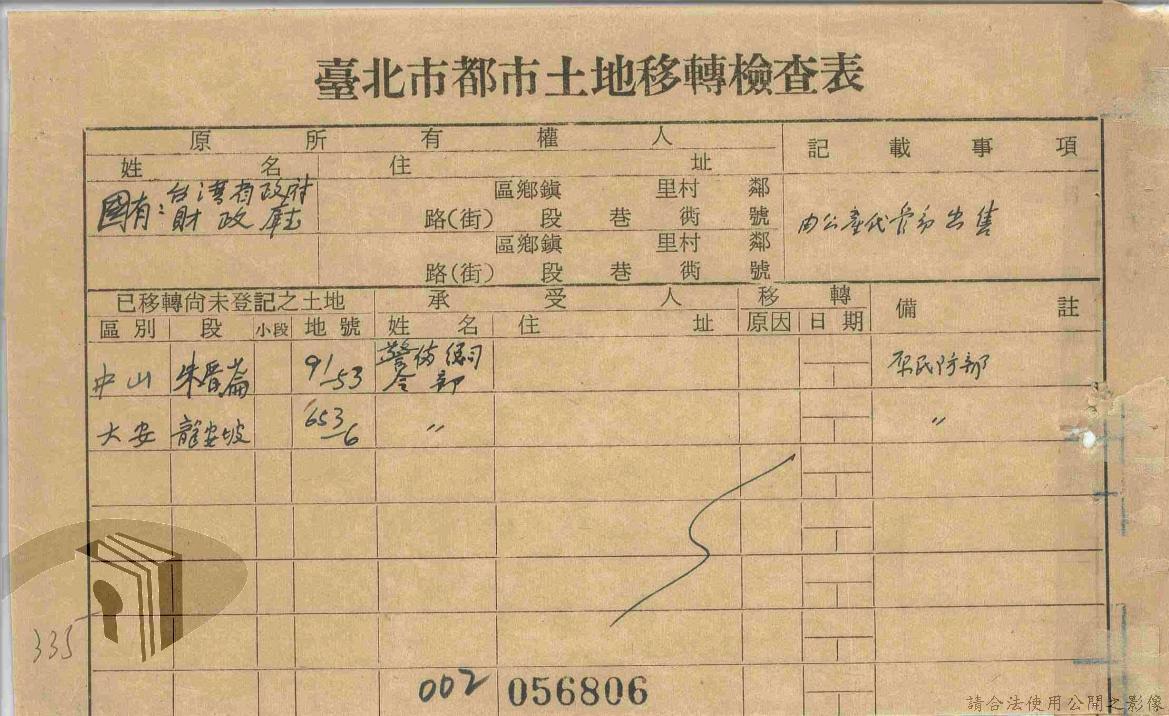 臺北市都市土地移轉檢查表
原所有權人 記載事項
姓名 住址
國有:台灣省政府 區鄉鎮 里村 鄰
財政廳 路(街) 段 巷 衖 號 由公產代管部出售
區鄉鎮 里村 鄰
路(街) 段 巷 衖 號
已移轉尚未登記之土地 承受人 移轉 備註
區別 段 小段 地號 姓名 住址 原因 日期
中山 朱厝崙 91-53 警備總司令部 原民防部
大安 龍安坡 653-6 〃 〃
335
002 056806
請合法使用公開之影像